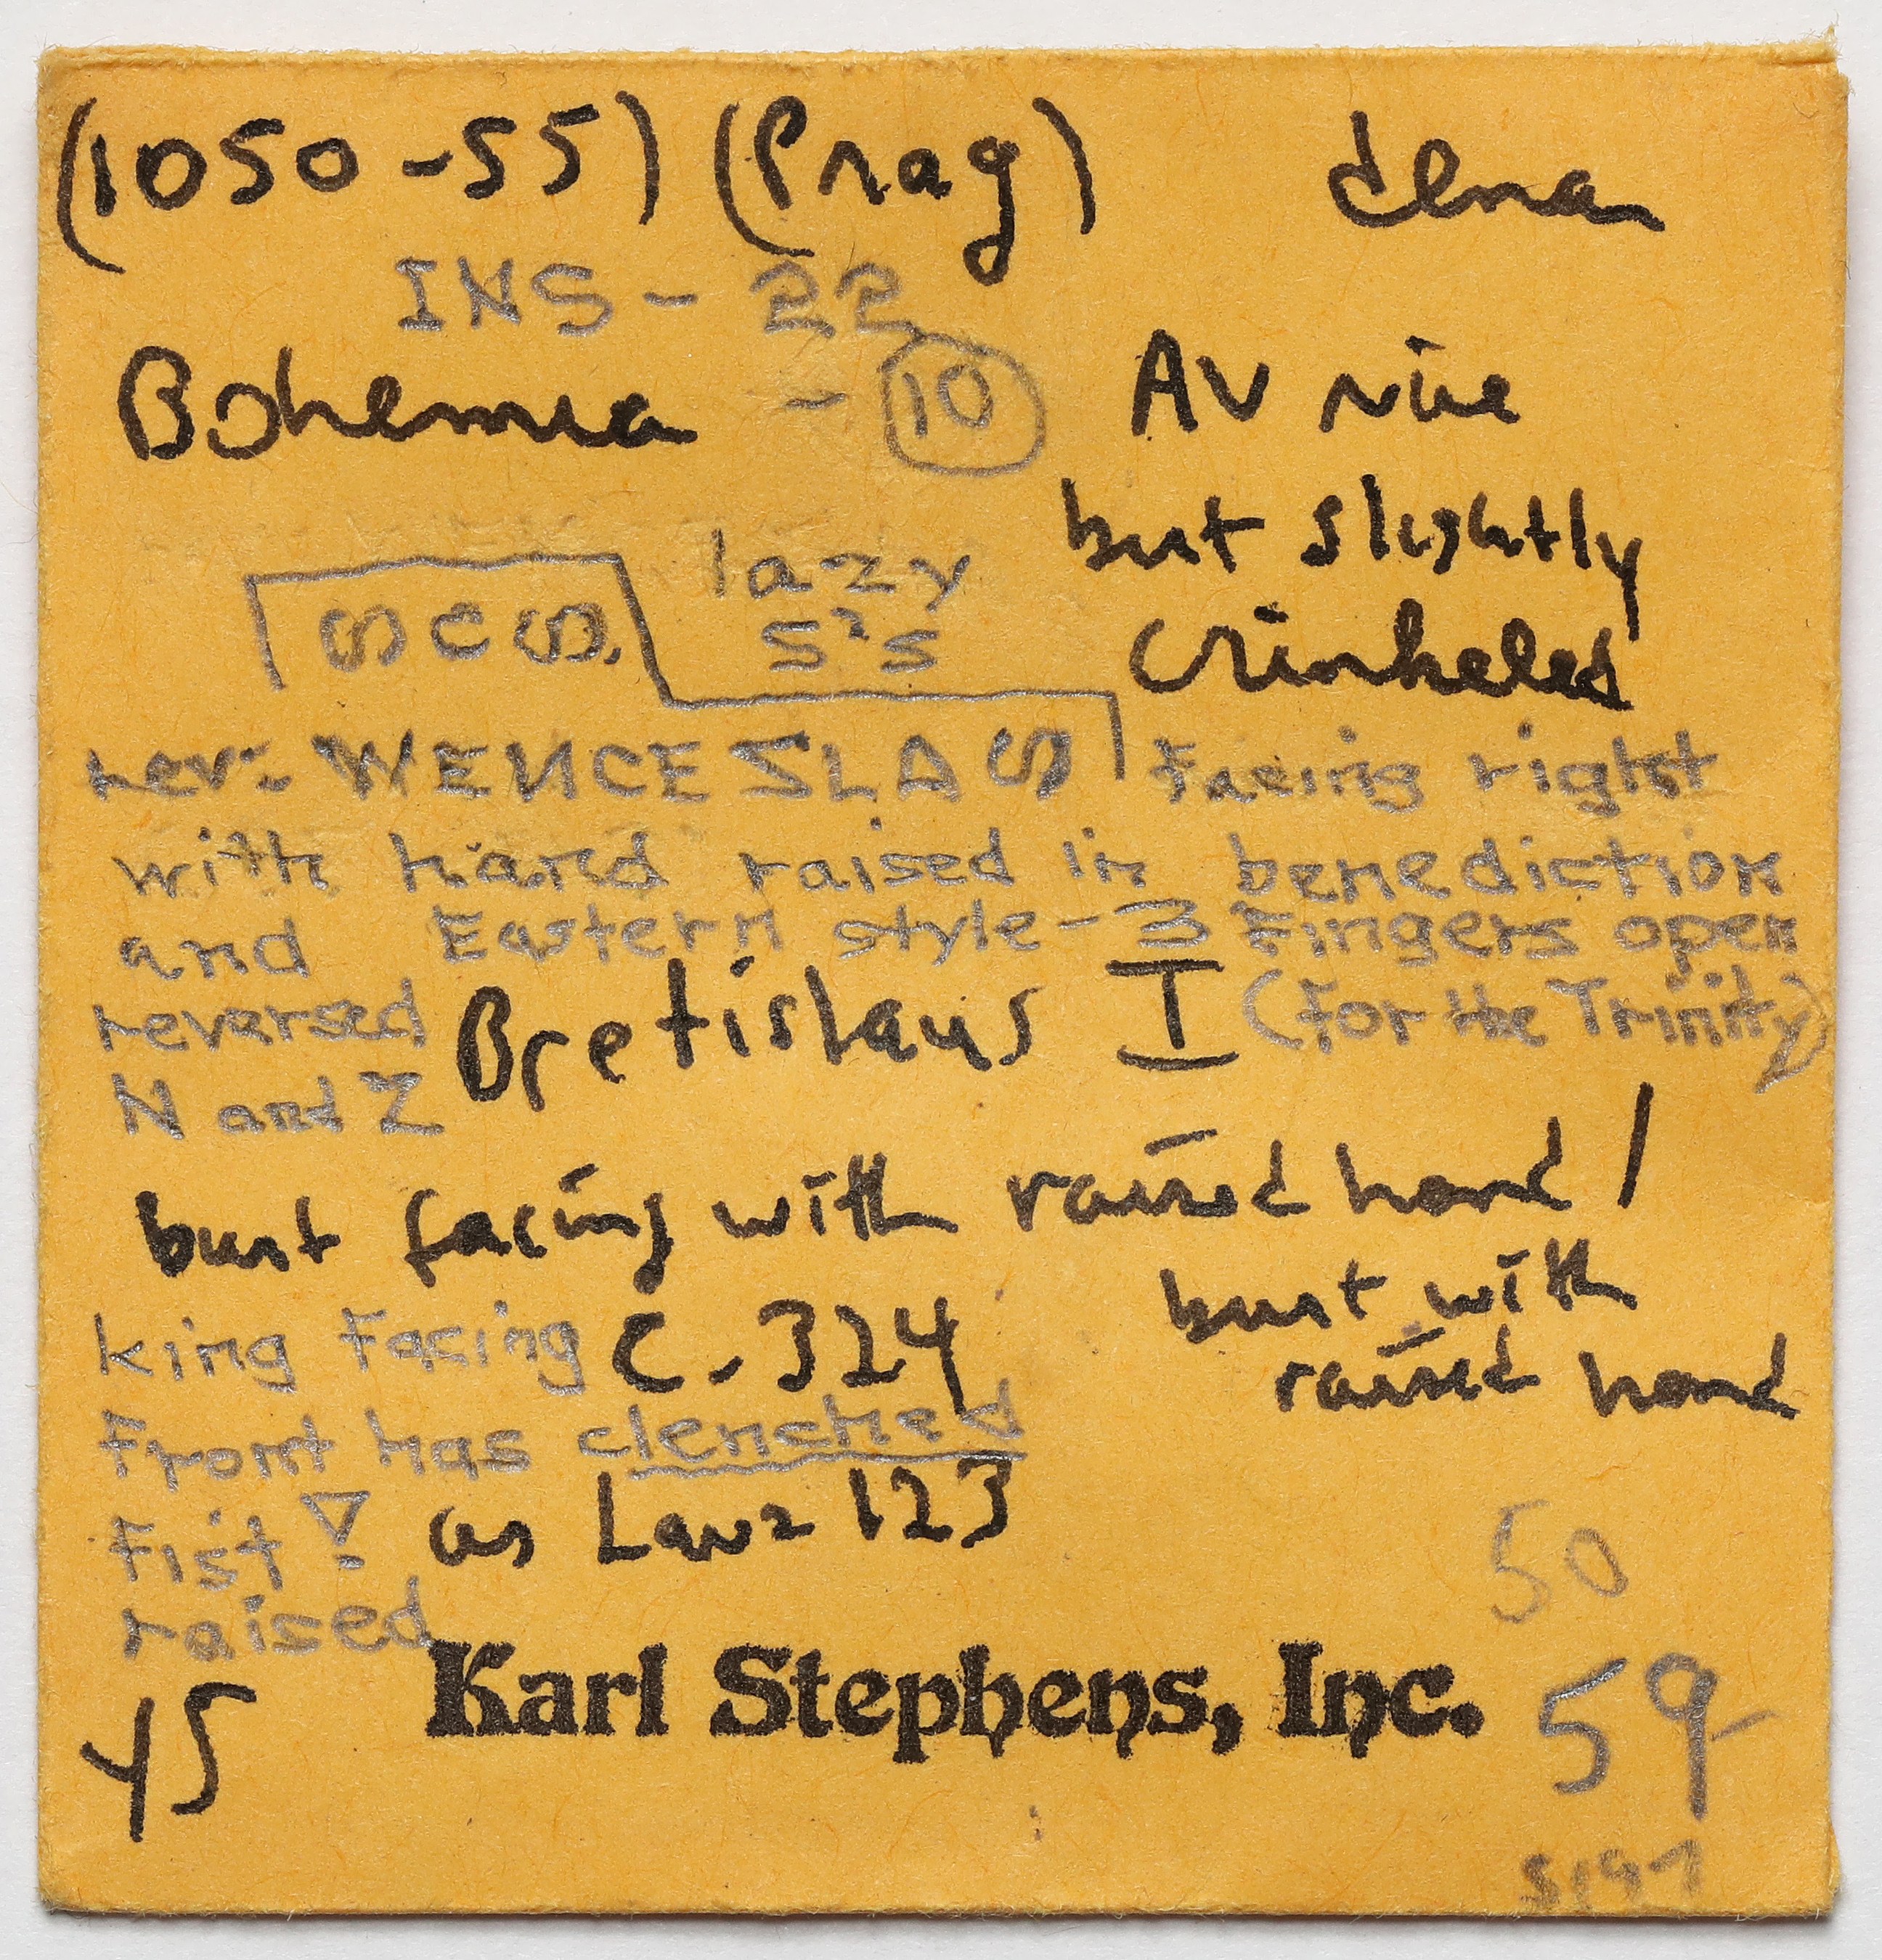 (1050-55) (Prag) dena
INS - 22
Bohemia - 10 AV nice
but slightly
lazy
S C S. S's
crinkeled
rev: WENCESLAS facing right
with hand raised in benediction
and Eastern style - 3 fingers open
reversed Bretislaus I (for the Trinity)
N and Z
bust facing with raised hand /
bust with
king facing C-324 raised hand
front has clenched
fist as Lanz 123
raised 50
45 Karl Stephens, Inc. 59